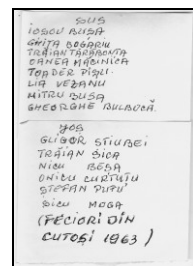 SUS
IOSOU BUSA
GHIȚĂ BOGARIU
TRĂIAN TĂRĂBONȚA
OANEA MĂCINICA
TOADER PIȘU.
LIA VEZANU
MITRU BUSA
GHEORGHE BULBUCĂ.
JOS
GLIGOR STIUBEI
TRĂIAN SICA
NICU BEȘA
ONICU CURTUȚU
ȘTEFAN PUPU
SICU MOGA
(FECIORI DIN
CUTOȘI 1963)